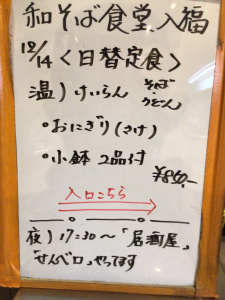 和そば食堂 入福
12/14 <日替定食>
温) けいらん そば・うどん
・おにぎり(さけ)
・小鉢 2品付
¥850.-
入口こちら
夜) 17:30～「居酒屋」
「せんべロ」やってます